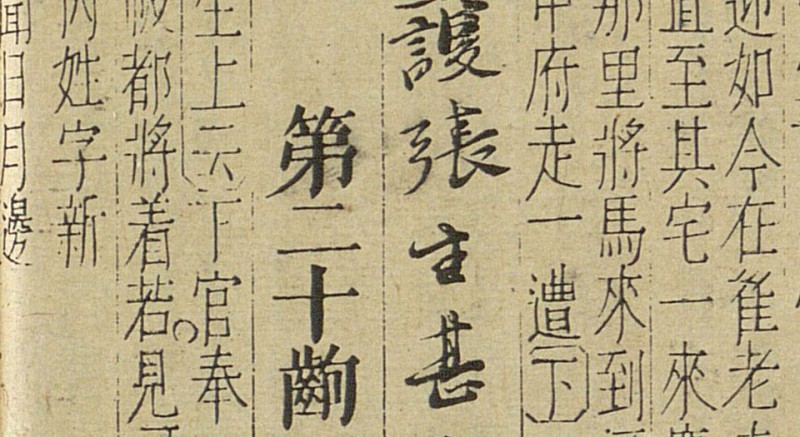 迎如今在崔老
直至其宅一來
那里將馬來到
中府走一遭下
護張生甚
第二十齣
生上云下官奉
敕都將着若見
內姓字新
聞日月邊